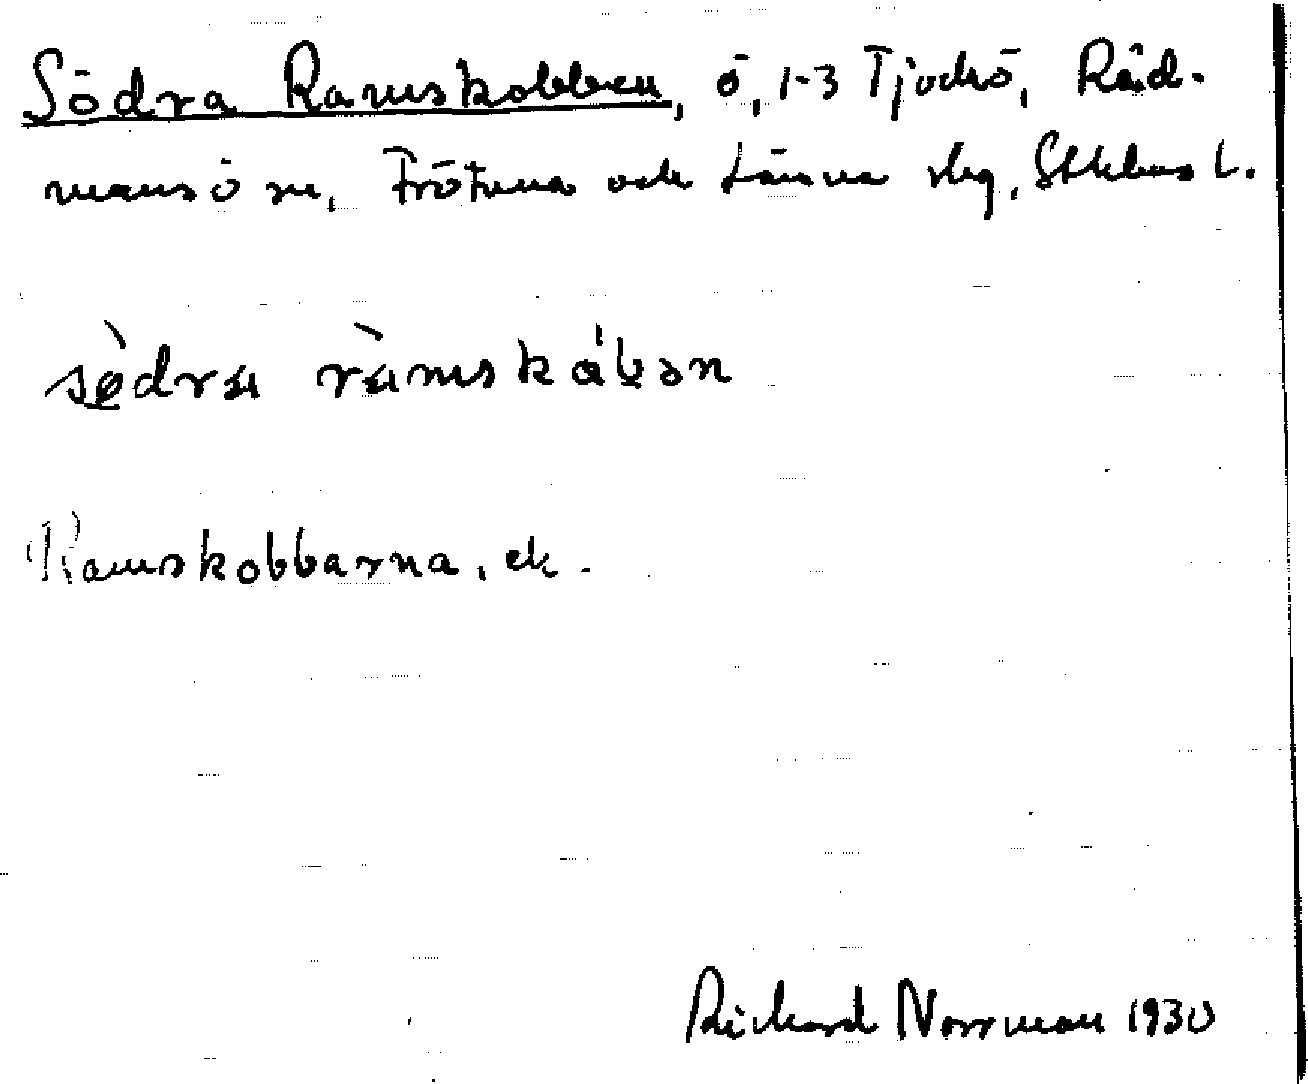 Södra Ramskobben, ö, 1-3 Tjockö, Råd-
mansö sn, Frötuna och Länna slg, Sthlms l.
sö̀dra ràmskåbən
Ramskobbarna, ek.
Rickard Norrman 1930